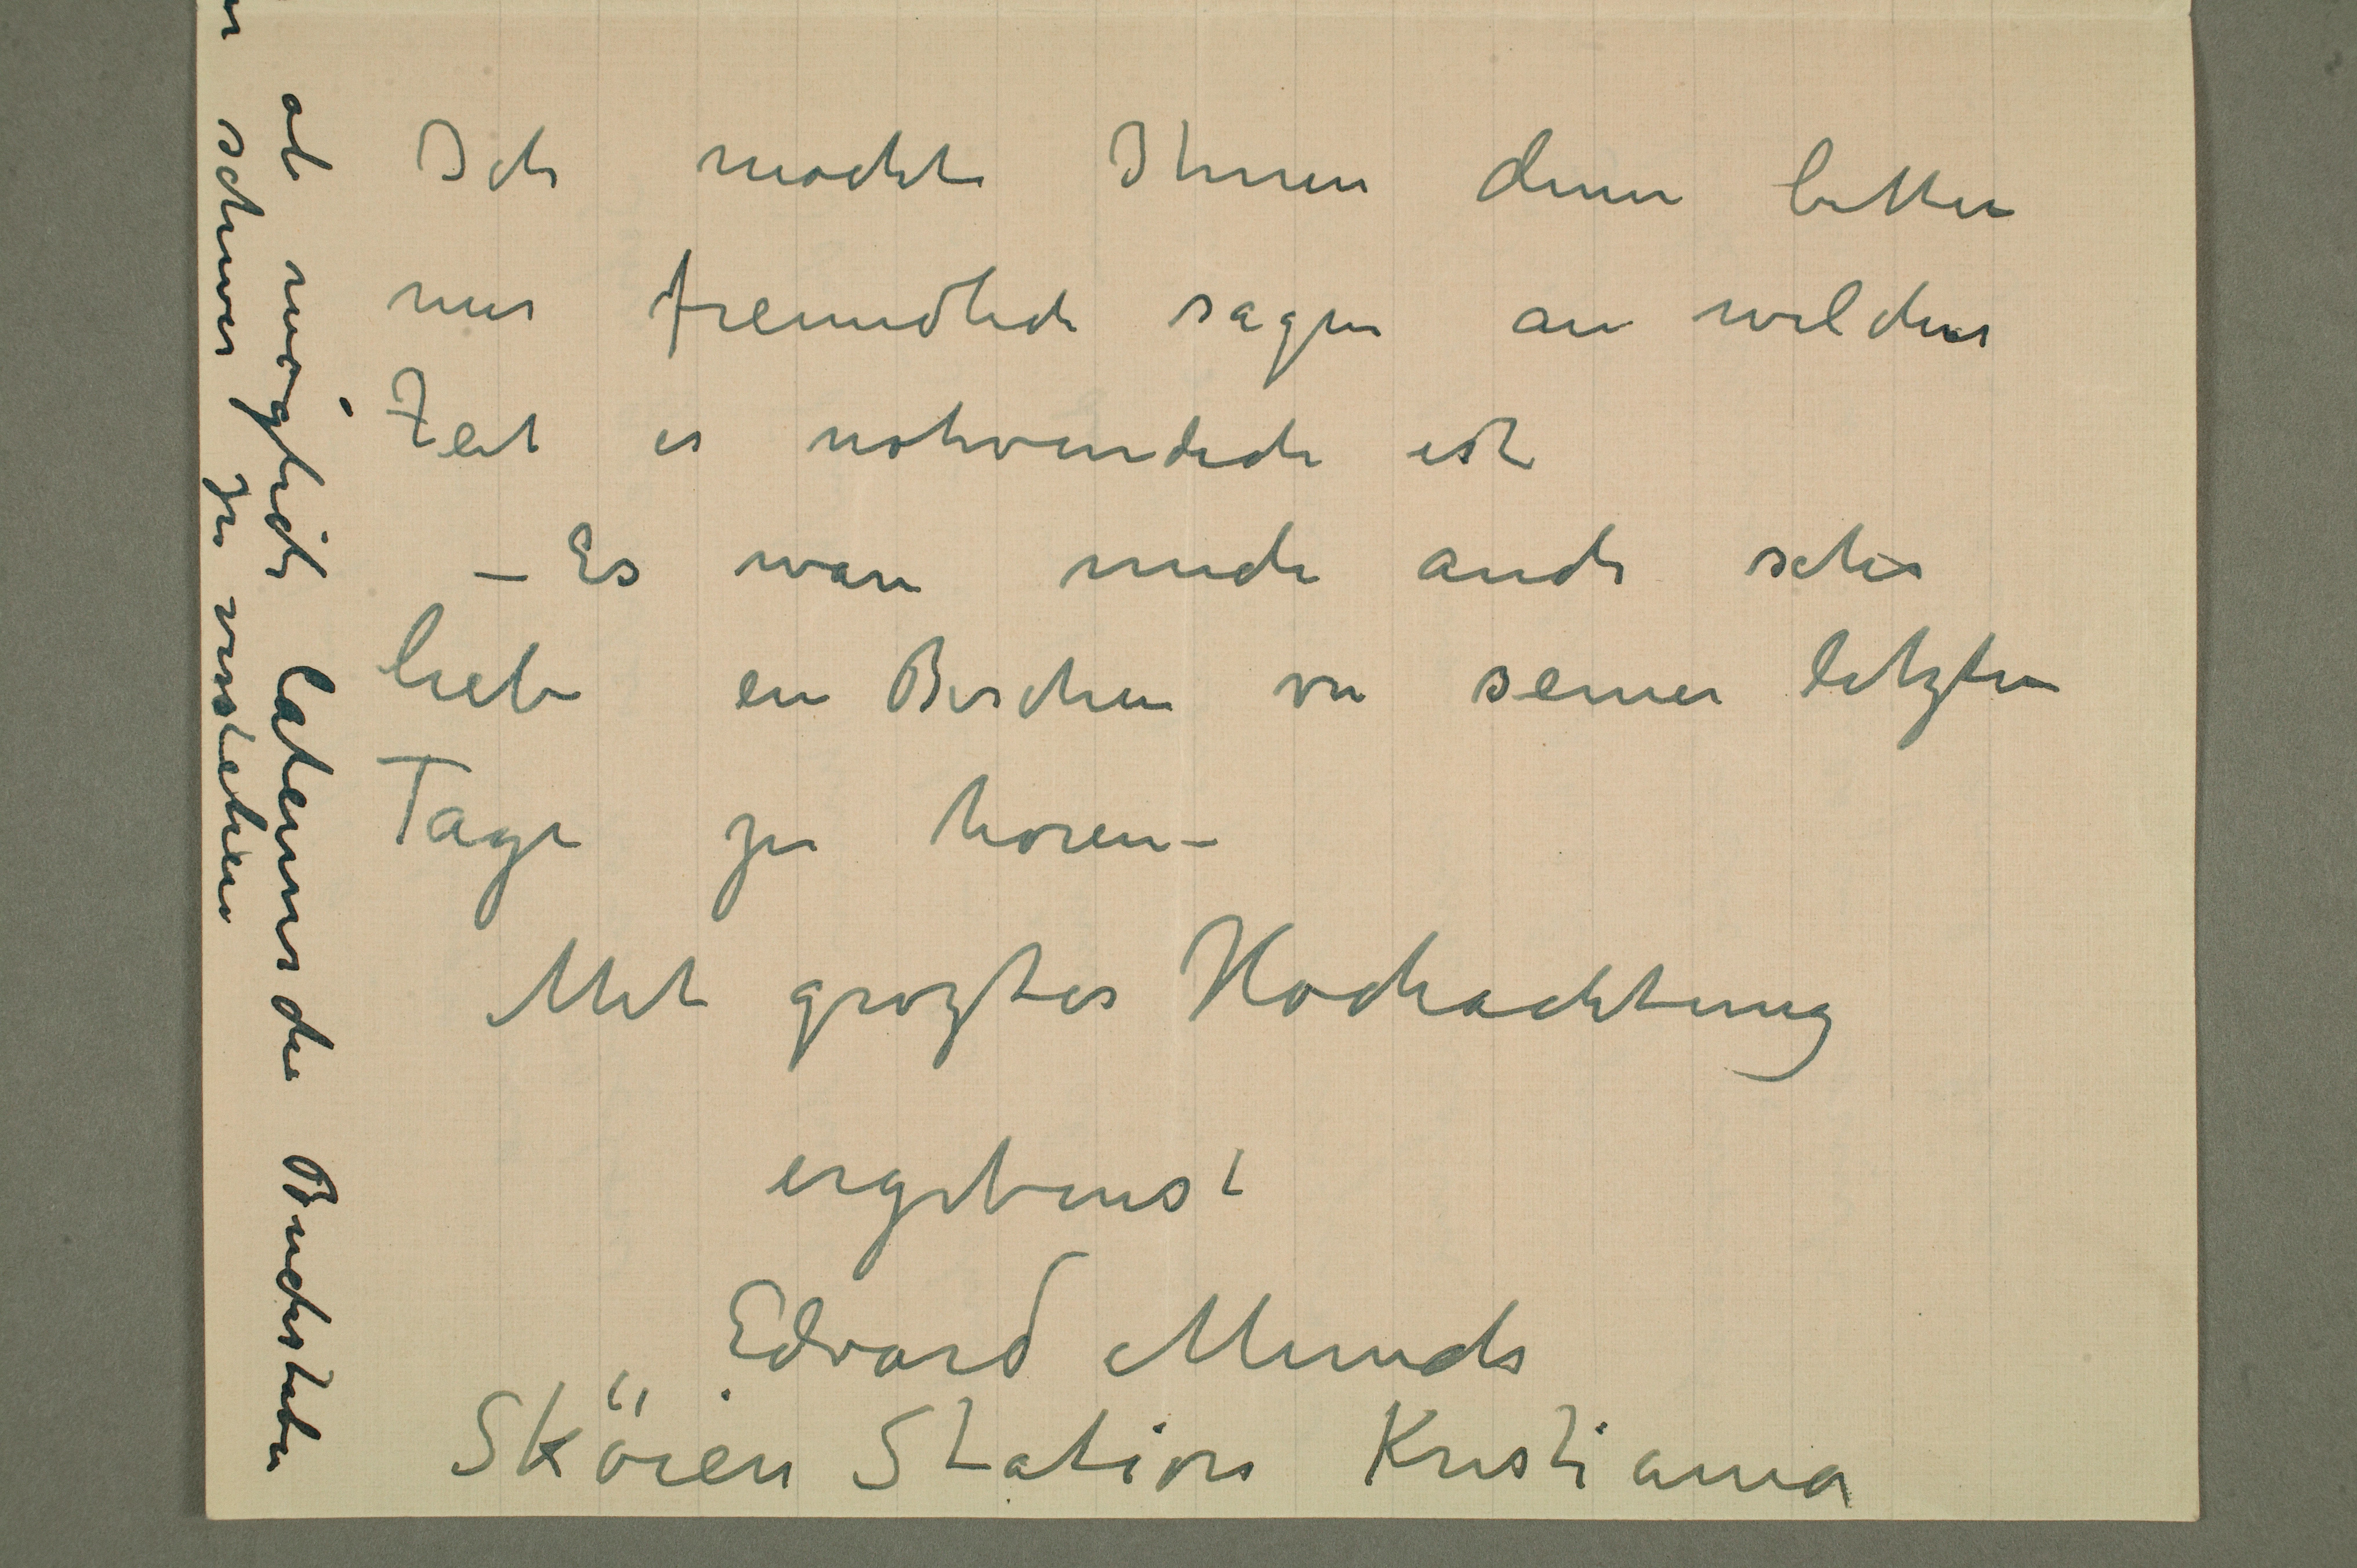 Ich mochte Ihnen denn bitten
mir freundlich sagen an welcher
Zeit es nothvendich ist
– Es ware mich auch sehr
liebe ein Bischen von seiner letzten
Tage zu horen –
Mit grozter Hochachtung
ergebenst
Edvard Munch
Sköien Station Kristiania
ob möglich lateinische Buchstaben
schwer zu verstehen